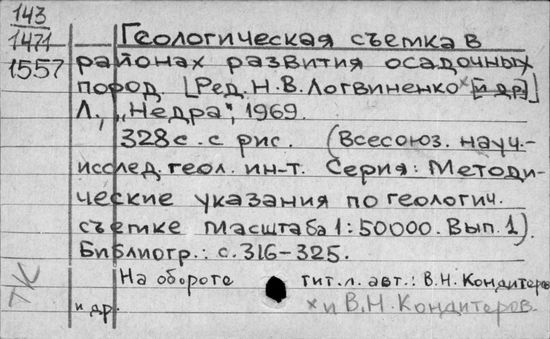 143
1471
1557
Геологическая съемка в
районах развития осадочных
пород. [Ред. Н.В. Логвиненко× и др]
Л., „Недра", 1969.
328с. с рис. (Всесоюз. науч.-
исслед. геол. ин-т. Серия: Методи-
ческие указания по геологич.
съемке масштаба 1:50000. Вып. 1).
Библиогр.: с. 316-325.
На обороте тит. л. авт.: В.Н. Кондитеров
и др.
× и В.Н. Кондитеров.